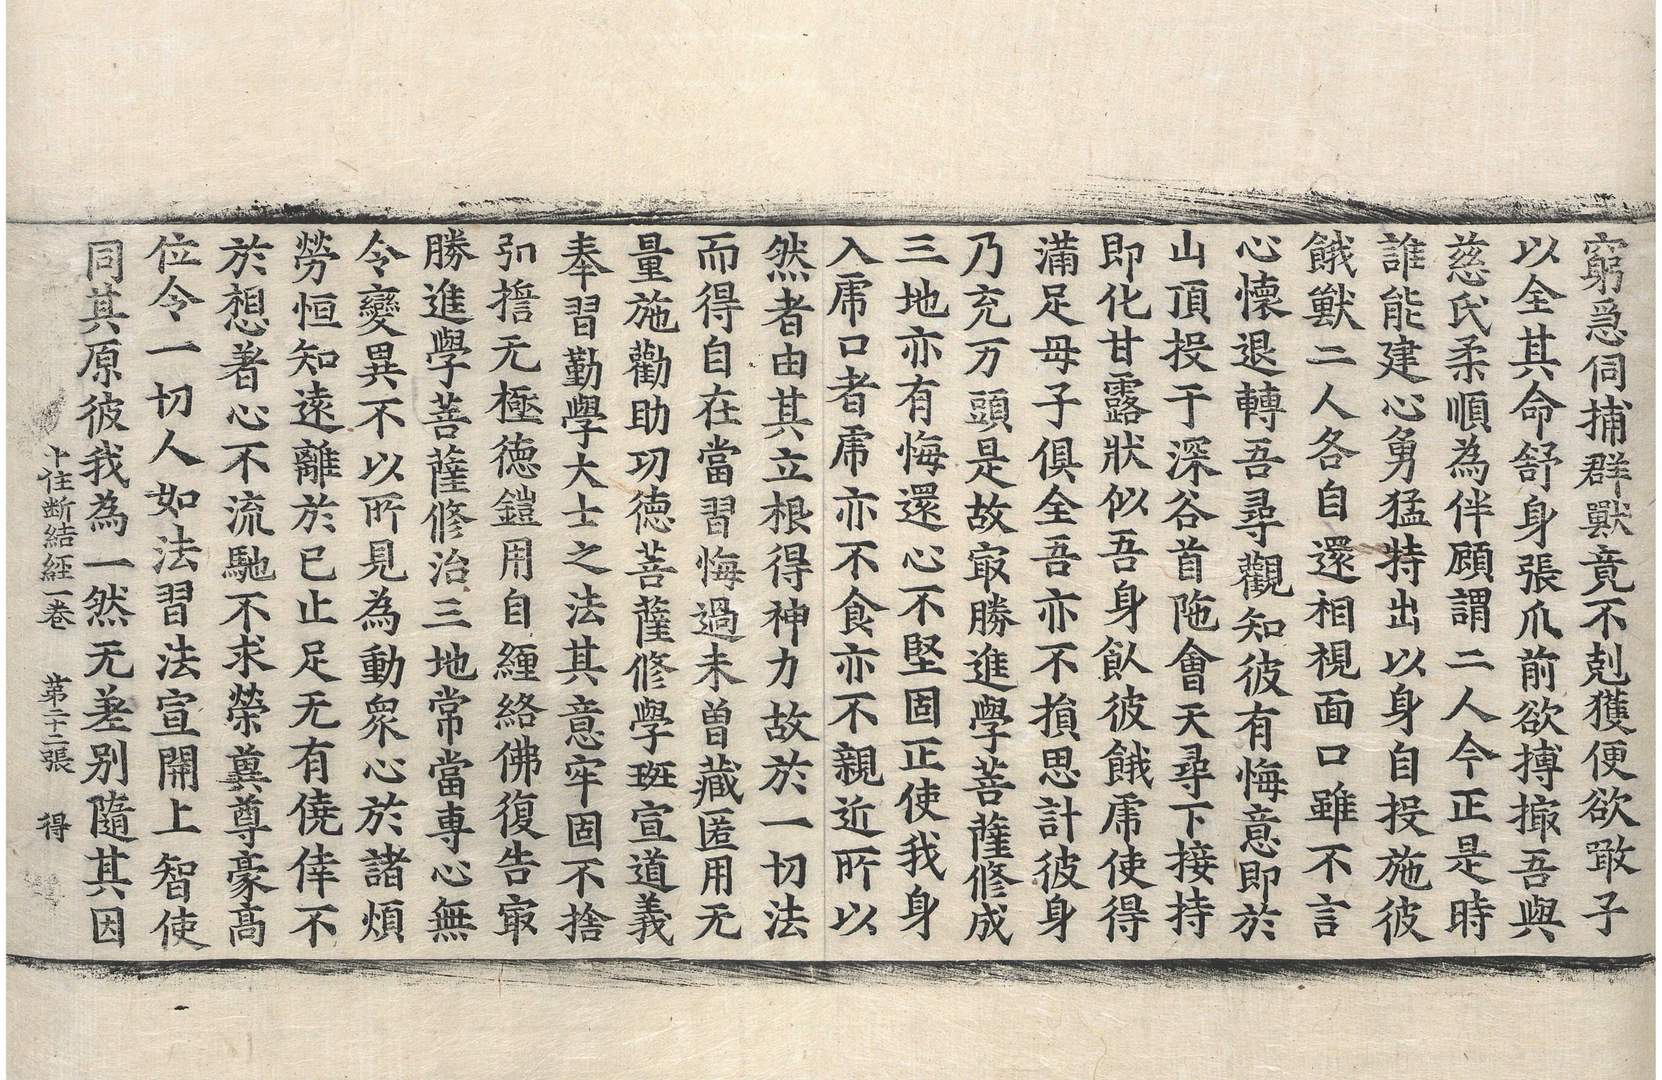 窮急伺捕群獸竟不剋獲便欲噉子
以全其命舒身張爪前欲搏撮吾與
慈氏柔順為伴顧謂二人今正是時
誰能建心勇猛特出以身自投施彼
餓獸二人各自還相視面口雖不言
心懷退轉吾尋觀知彼有悔意即於
山頂投于深谷首阤會天尋下接持
即化甘露狀似吾身飲彼餓虎使得
滿足母子俱全吾亦不損思計彼身
乃充万頭是故㝡勝進學菩薩修成
三地亦有悔還心不堅固正使我身
入虎口者虎亦不食亦不親近所以
然者由其立根得神力故於一切法
而得自在當習悔過未曾藏匿用无
量施勸助功德菩薩修學班宣道義
奉習勤學大士之法其意牢固不捨
弘擔无極德鎧用自纏絡佛復告㝡
勝進學菩薩修治三地常當專心無
令變異不以所見為動衆心於諸煩
勞恒知遠離於已止足无有僥倖不
於想著心不流馳不求榮冀尊豪高
位令一切人如法習法宣開上智使
同其原彼我為一然无差別隨其因
十住断結経一巻　第二十二張　得